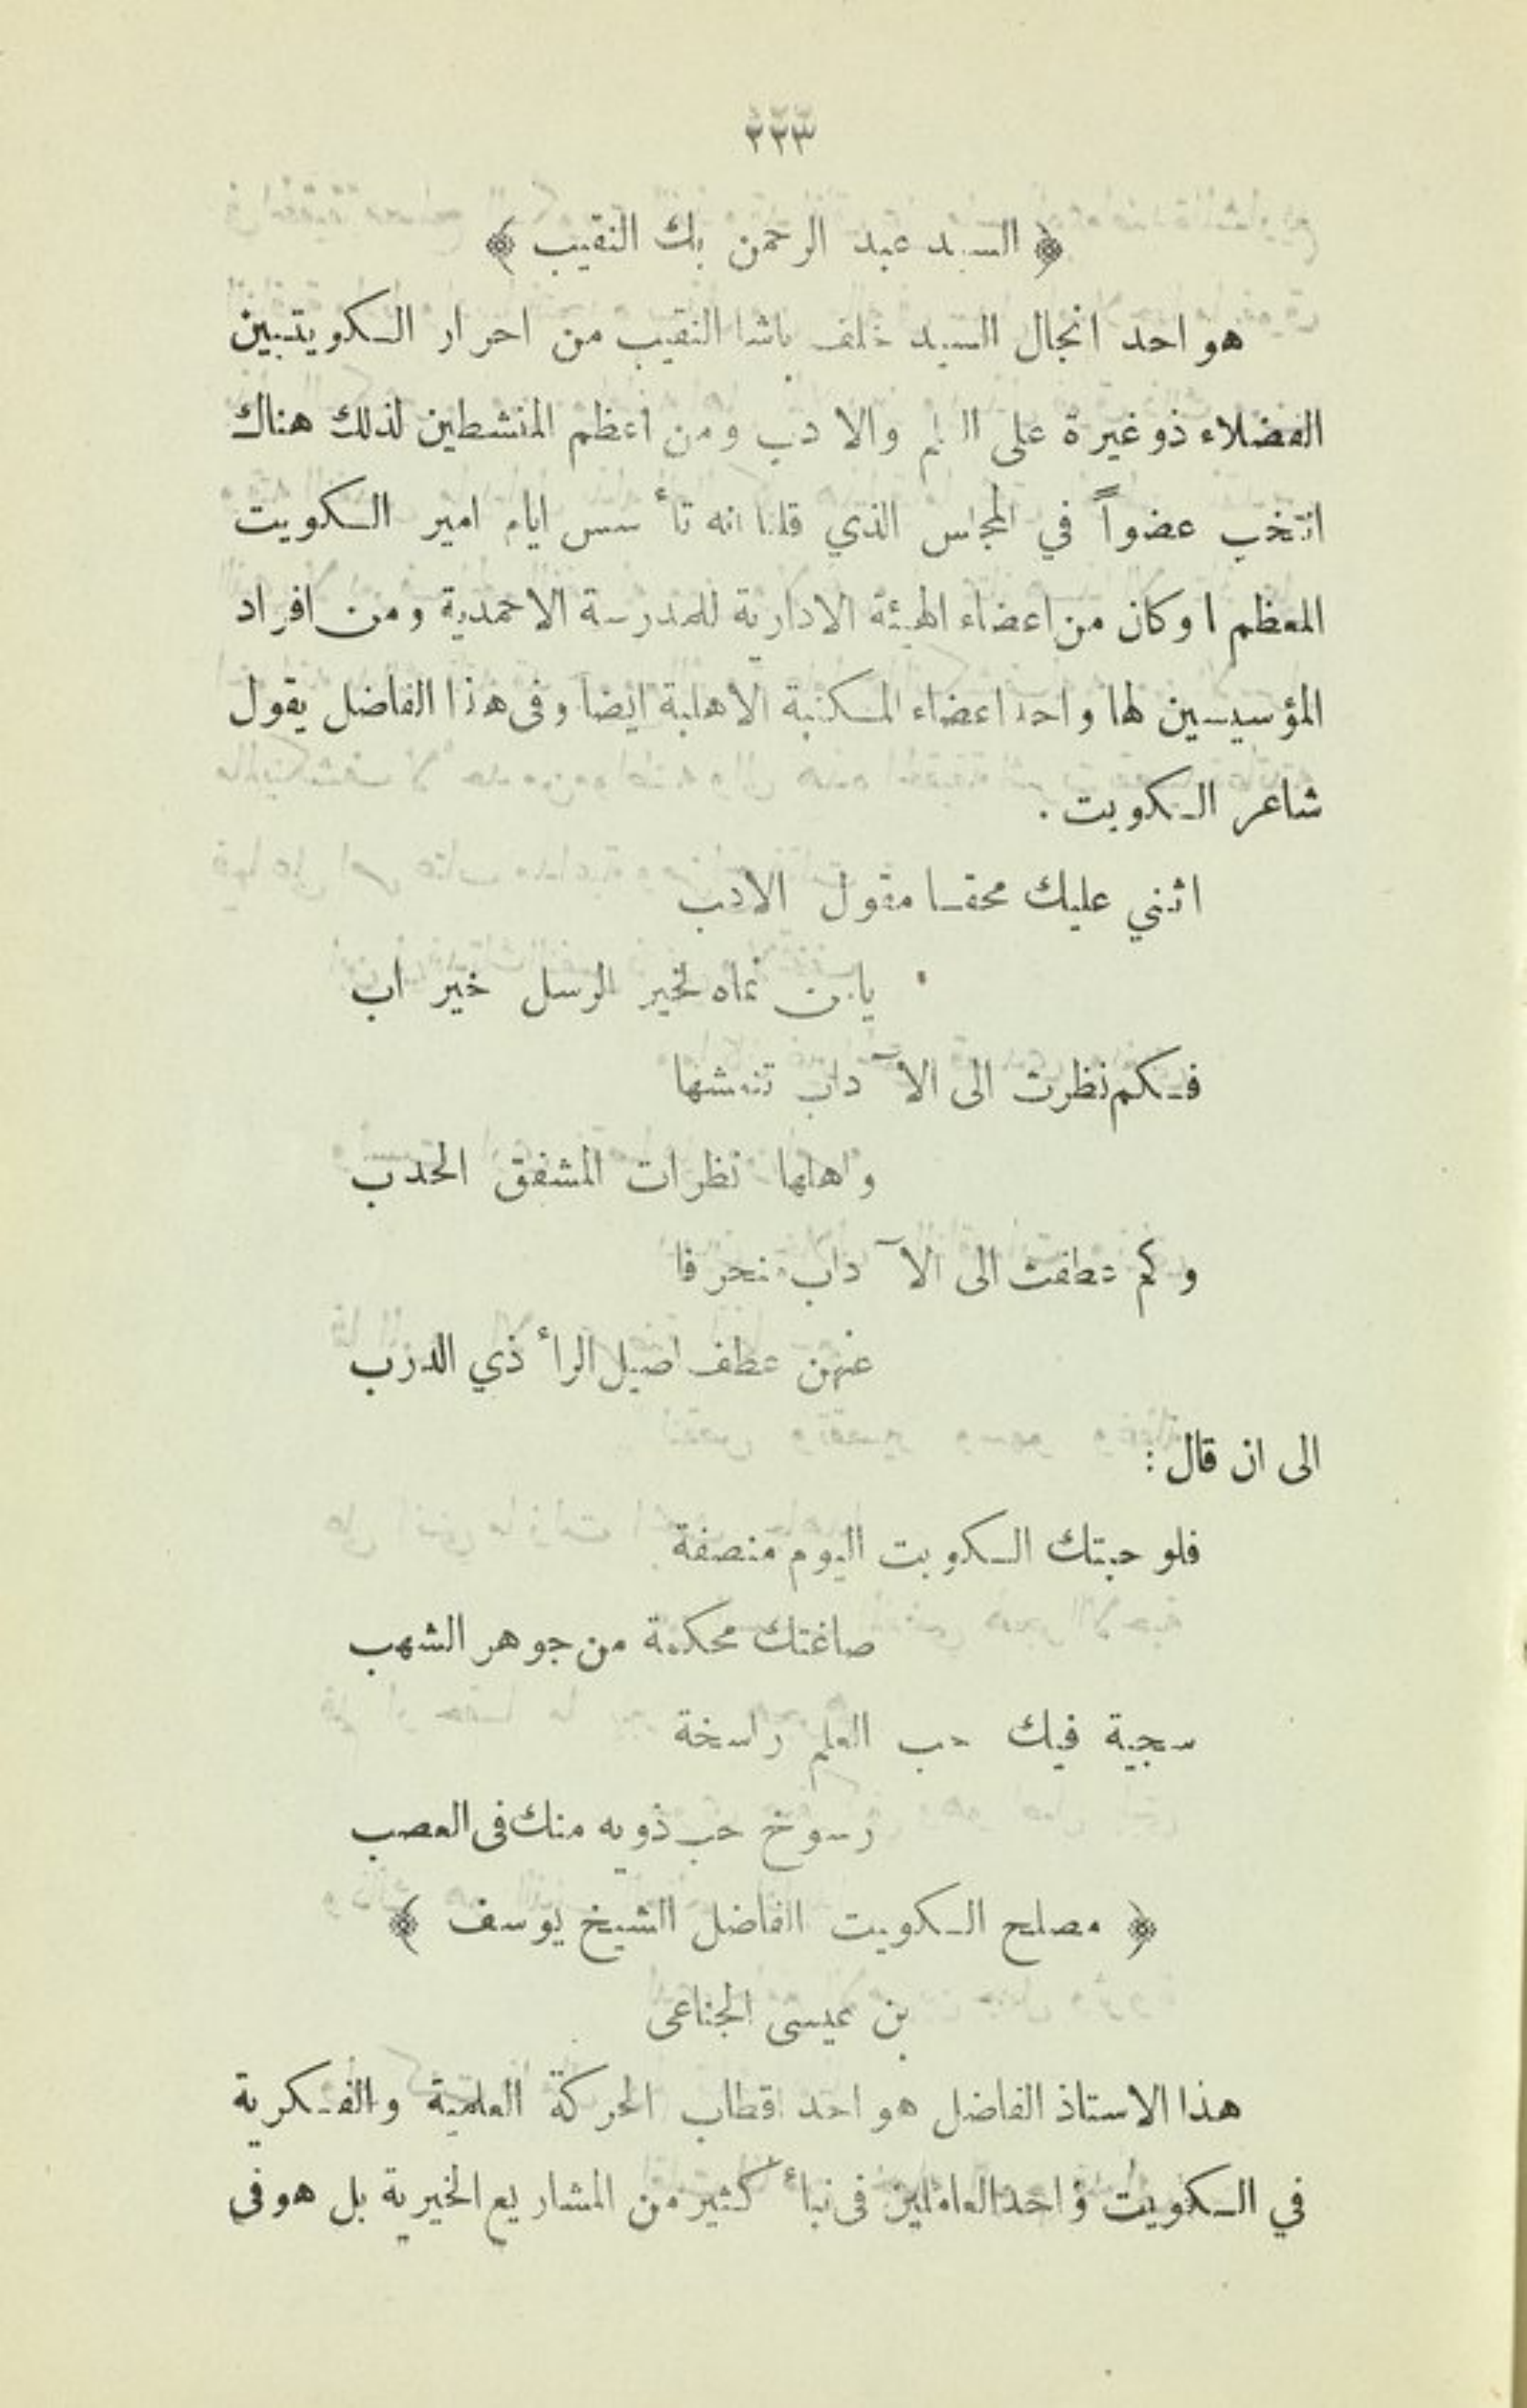 ٢٢٣
﴿ السيد عبد الرحمن بك النقيب ﴾
هو احد انجال السيد خلف باشا النقيب من احرار الكويتيين
الفضلاء ذو غيرة على العلم والادب ومن اعظم المنشطين لذلك هناك
انتخب عضواً في المجلس الذي قلنا انه تأسس ايام امير الكويت
المعظم ا وكان من اعضاء الهيئة الادارية للمدرسة الاحمدية ومن افراد
المؤسيسين لها واحد اعضاء المكتبة الاهلية ايضا وفى هذا الفاضل يقول
شاعر الكويت .
اثني عليك محقا مقول الادب
يابن نماه لخير الرسل خير اب
فكم نظرت الى الآداب تنعشها
واهلها نظرات المشفق الحدب
وكم عطفت الى الآداب منحرفا
عنهن عطف اصيل الرأ ذي الدرب
الى ان قال :
فلو حبتك الكويت اليوم منصفة
صاغتك محكمة من جوهر الشهب
سجية فيك حب العلم راسخة
رسوخ حب ذويه منك فى العصب
﴿ مصلح الكويت الفاضل الشيخ يوسف ﴾
بن عيسى الجناعى
هذا الاستاذ الفاضل هو احد اقطاب الحركة العلمية والفكرية
في الكويت واحد العاملين فى نبأ كثير من المشاريع الخيرية بل هو فى